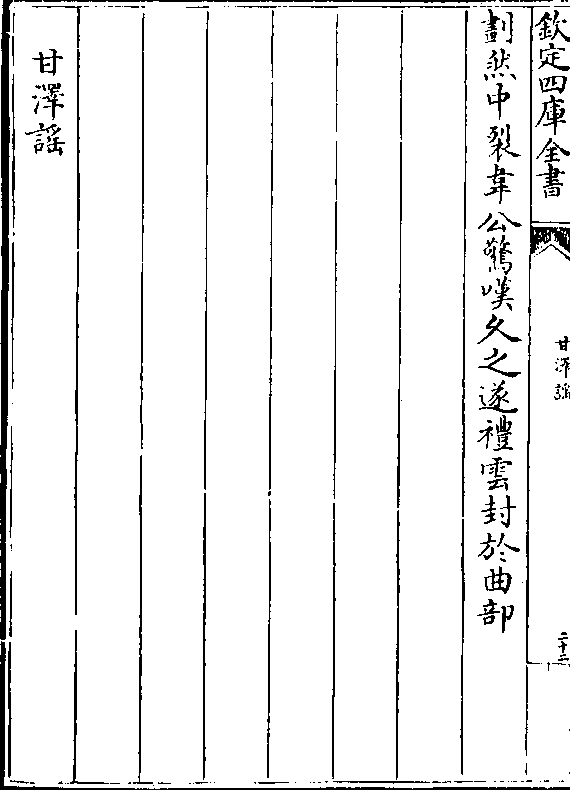 欽定四庫全書
甘澤謠
二十二
劃然中裂韋公驚嘆久之遂禮雲封於曲部
甘澤謠